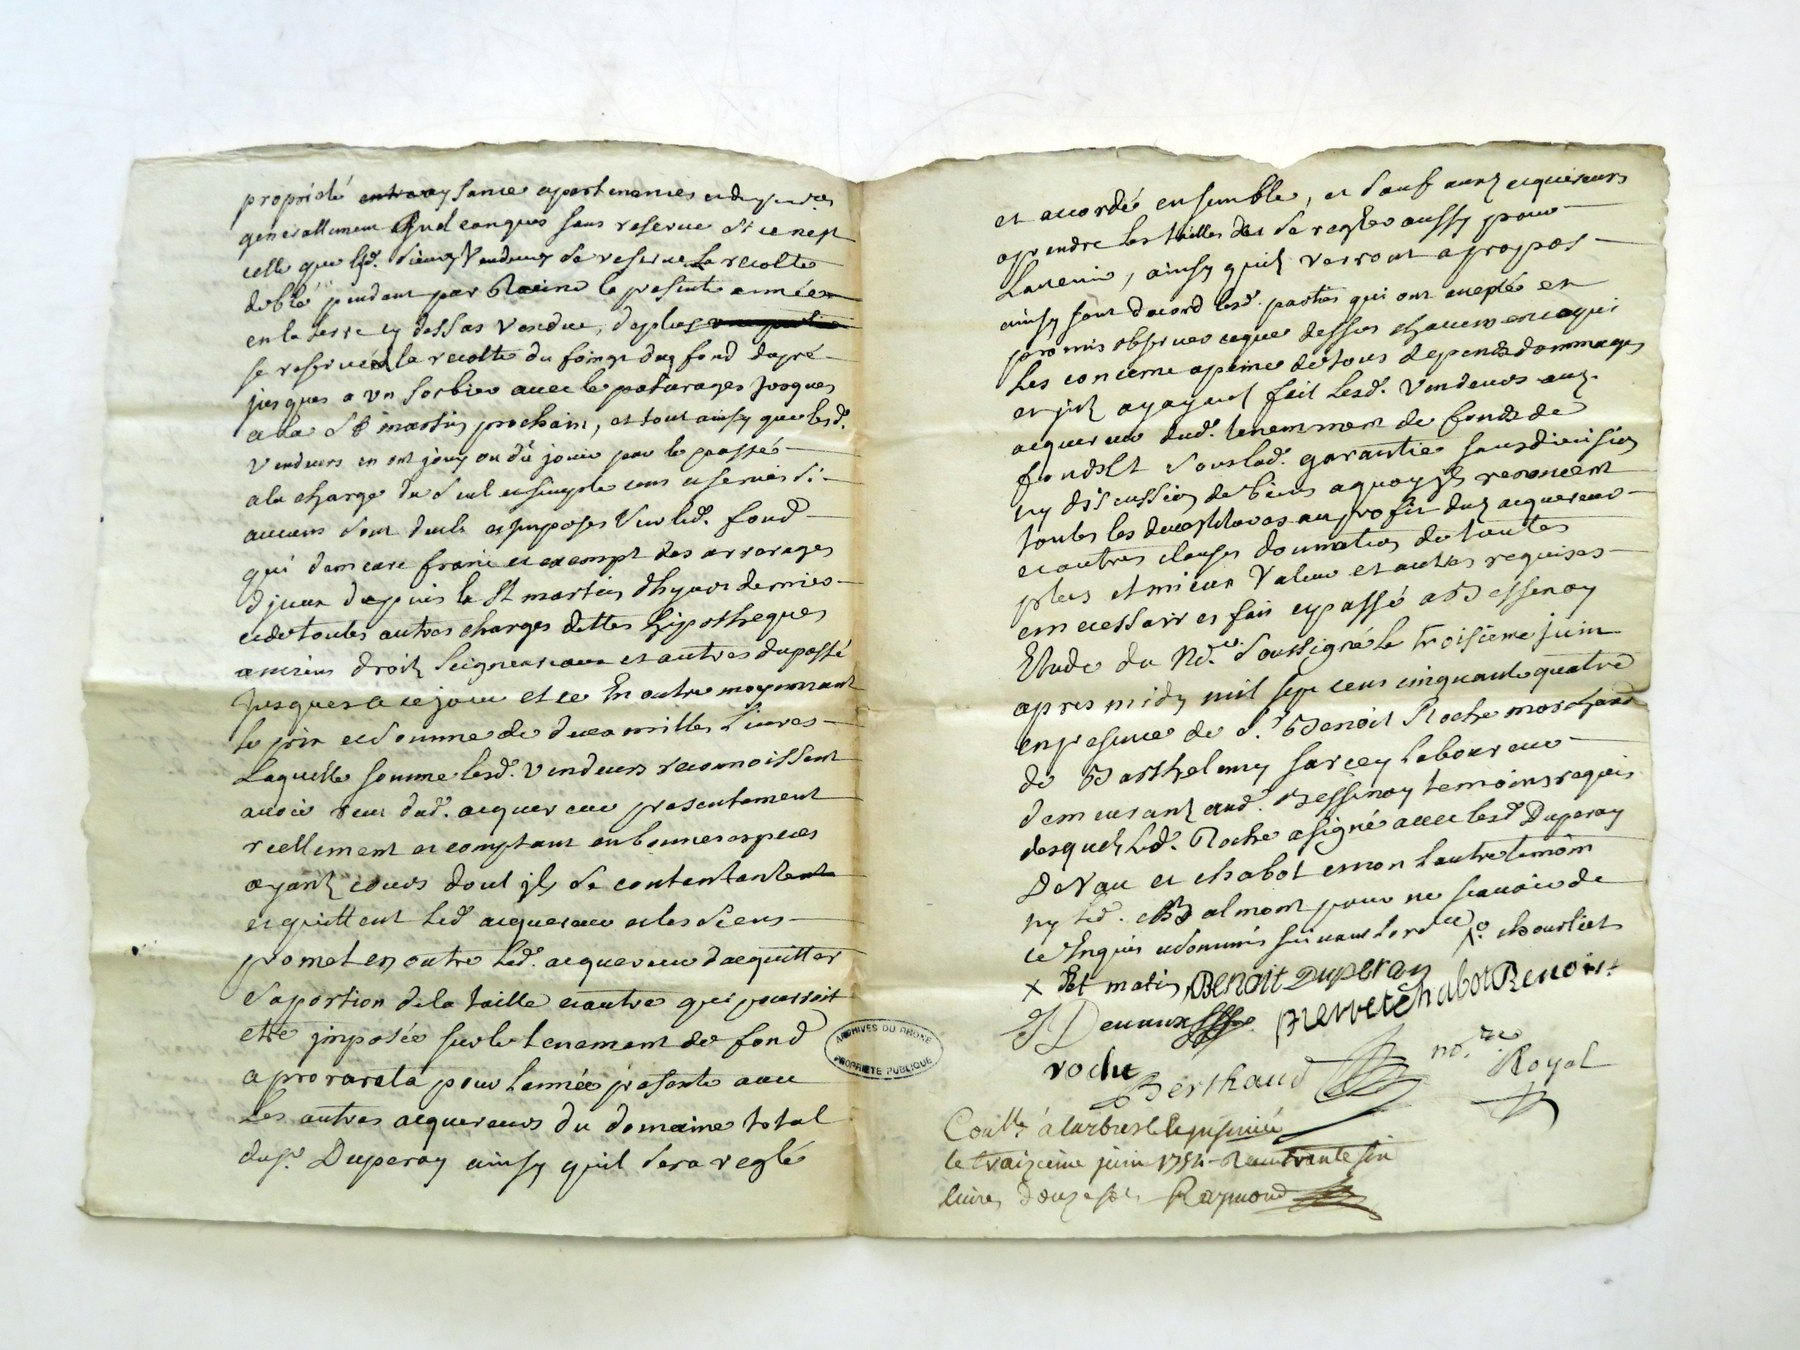 propriété entray sance apartenences et dependances
generallement quelconques sans reserve si ce n'est
celle que lesd. sieurs Vendeurs se reserve la recolte
deblé pendant par Racine la presente année
en la terre cy dessus vendue, deplus
se reserve la recolte du foing dud fond depré
jusques a un avec le paturages jusques
a la St martin prochain, et tout ainsy que lesd.
vendeurs en ont jouy ou dû jouir par le passé
ala charge du seul et simple cens et servis si
aucuns sont deubs et imposes sur led. fond
qui demeure franc et exempt des arrerages
d'jceux depuis la St martin dhyver dernier
et de toutes autres charges dettes hipotheques
anciens droits seigneuriaux et autres du passé
jusques a ce jour et ce En outre moyennant
le prix et somme de deux milles livres
Laquelle somme lesd. vendeurs reconnoissent
avoir reçu dud. acquereur presentement
reellement et comptant en bonnes especes
ayant cours dont jls se contentent
et quittent led acquereur et les siens
promet en outre led. acquereur d'acquitter
sa portion de la taille et autre qui pourroit
etre jmposée sur le tenement de fond
a prorata pour l'année presente avec
Les autres acquereurs du domaine total
dud sr. Duperay ainsy quil sera reglé
et accordé ensemble, et sauf auxd acquereurs
aprendre les tailles de se regler aussy pour
Lavenir, ainsy quils verront a propos
ainsy sont dacord lesd. parties qui ont accepté et
promis observer ce que dessus chacun en ce qui
les concerne apeine de tous depends dommages
et jnt ayant fait lesd. vendeurs aud.
acquereur dud. tenement de fonds de
fonds et sous lad. garantie sans division
ny discussion de biens aquoy jls renoncent
toutes les au profit dud acquereur
et autres clauses donnation de toutes
plus et mieux value et autres requises
et necessaires fait et passé a Bessenay
Etude du Nore. soussigné le troisieme juin
apres midy mil sept cens cinquante quatre
en presence de Sr. Benoit Roche marchand
de Barthelemy sarcey laboureur
demeurants aud. Bessenay temoins requis
desquels led. Roche a signé avec lesd Duperay
De Vau et chabot et non l'autre temoin
ny led. Balmont pour ne scavoir de
ce Enquis et sommés suivant lordce
x Benoit Duperay
JDevaux pierre chabot Benoist
roche Berthaud nore. Royal
Coullé à larbresle
le traizieme juin 1754 Reçu trente six
livres douze sols Raymond
ARCHIVES DU RHONE
PROPRIETE PUBLIQUE